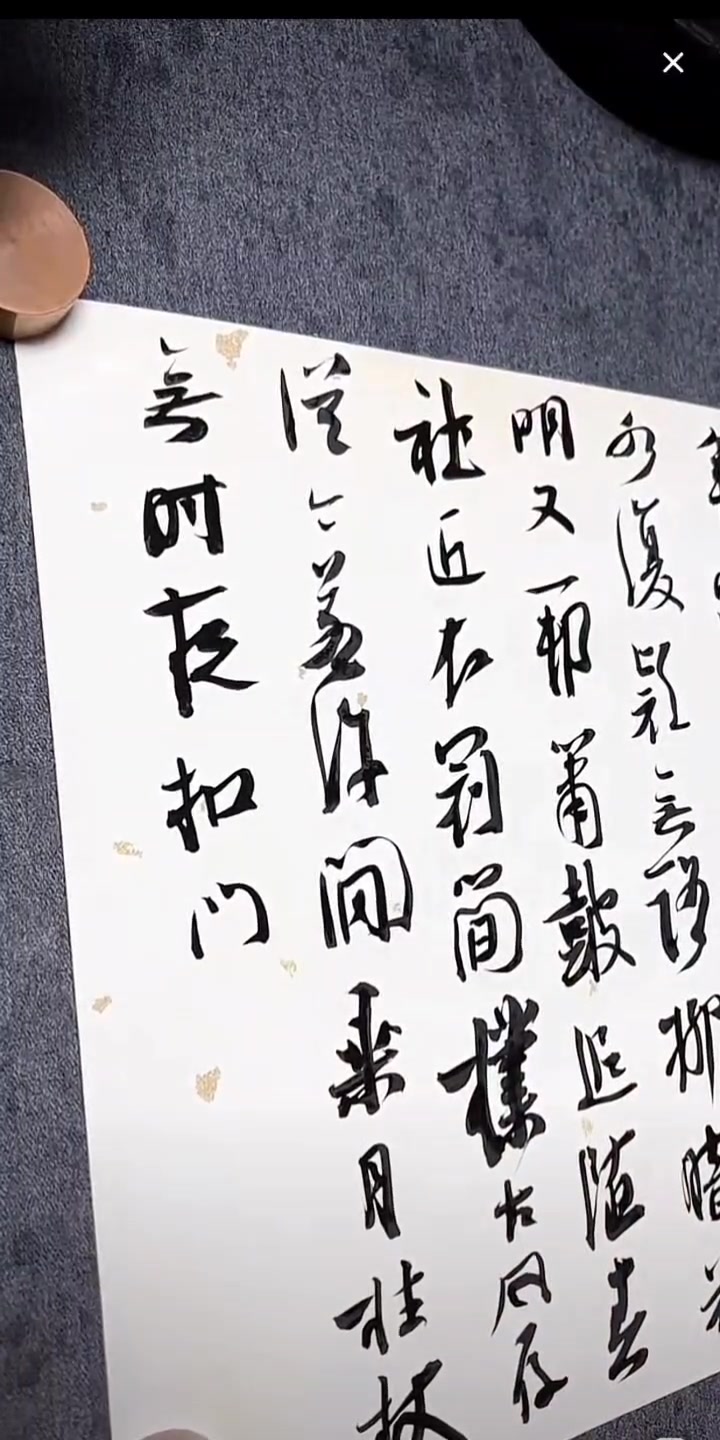 水復疑無路柳暗花
明又一邨簫鼓追随春
社近衣冠简樸古风存
從今若许间乘月拄杖
無时夜扣门